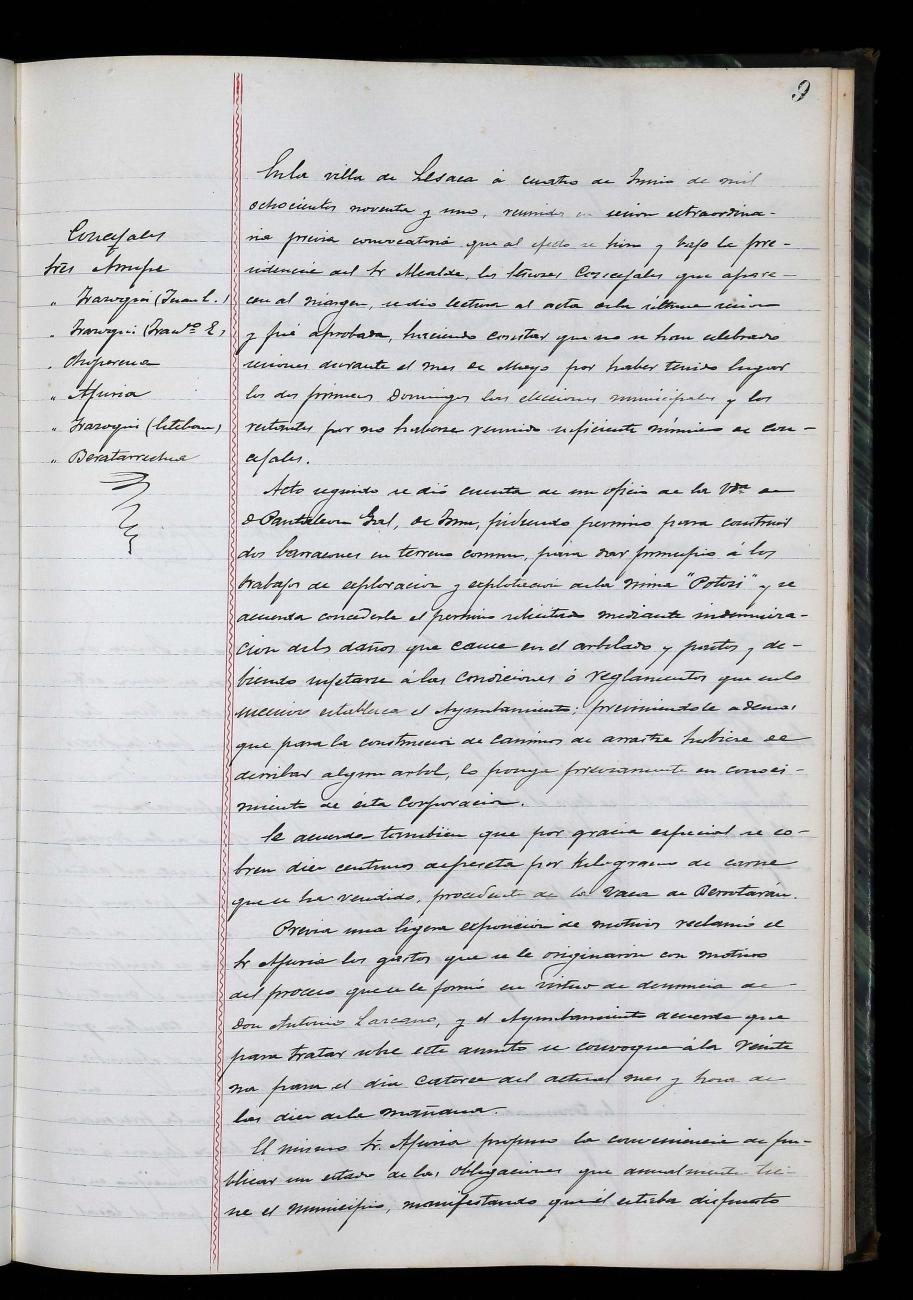 9
Concejales
Sres Arrupe
" Irazoqui (Juan L.)
" Irazoqui (Franco E)
" Chiperena
" Apuria
" Irazoqui (Esteban)
" Beratarrechea
En la villa de Lesaca á cuatro de Junio de mil
ochocientos noventa y uno, reunidos en sesion extraordina-
ria previa convocatoria que al efecto se hizo y bajo la pre-
sidencia del Sr Alcalde, los Señores Concejales que apare-
cen al margen, se dió lectura al acta de la última sesion
y fué aprobada, haciendo constar que no se han celebrado
sesiones durante el mes de Mayo por haber tenido lugar
los dos primeros Domingos las elecciones municipales y los
restantes por no haberse reunido suficiente número de con-
cejales.
Acto seguido se dió cuenta de un oficio de la Vda de
D Pantaleon Gal, de Irun, pidiendo permiso para construir
dos barracones en terreno comun, para dar principio á los
trabajos de exploracion y explotacion de la mina "Potosi" y se
acuerda concederle el permiso solicitado mediante indemniza-
cion de los daños que cause en el arbolado y pastos y de-
biendo sujetarse á las condiciones ó reglamentos que en lo
sucesivo establezca el Ayuntamiento; previniendole ademas
que para la construccion de caminos de arrastre hubiese de
derribar algun arbol, lo ponga previamente en conoci-
miento de ésta Corporacion.
Se acuerda tambien que por gracia especial se co-
bren diez centimos de peseta por Kilogramo de carne
que se ha vendido, procedente de la Vaca de Berrotarán.
Previa una ligera exposicion de motivos reclamó el
Sr Apuria los gastos que se le originaron con motivo
del proceso que se le formó en virtud de denuncia de
Don Antonio Lazcano, y el Ayuntamiento acuerda que
para tratar sobre este asunto se convoque á la Veinte
na para el dia catorce del actual mes y hora de
las diez de la mañana.
El mismo Sr. Apuria propuso la conveniencia de pu-
blicar un estado de las obligaciones que anualmente tie-
ne el Municipio, manifestando que él estaba dispuesto